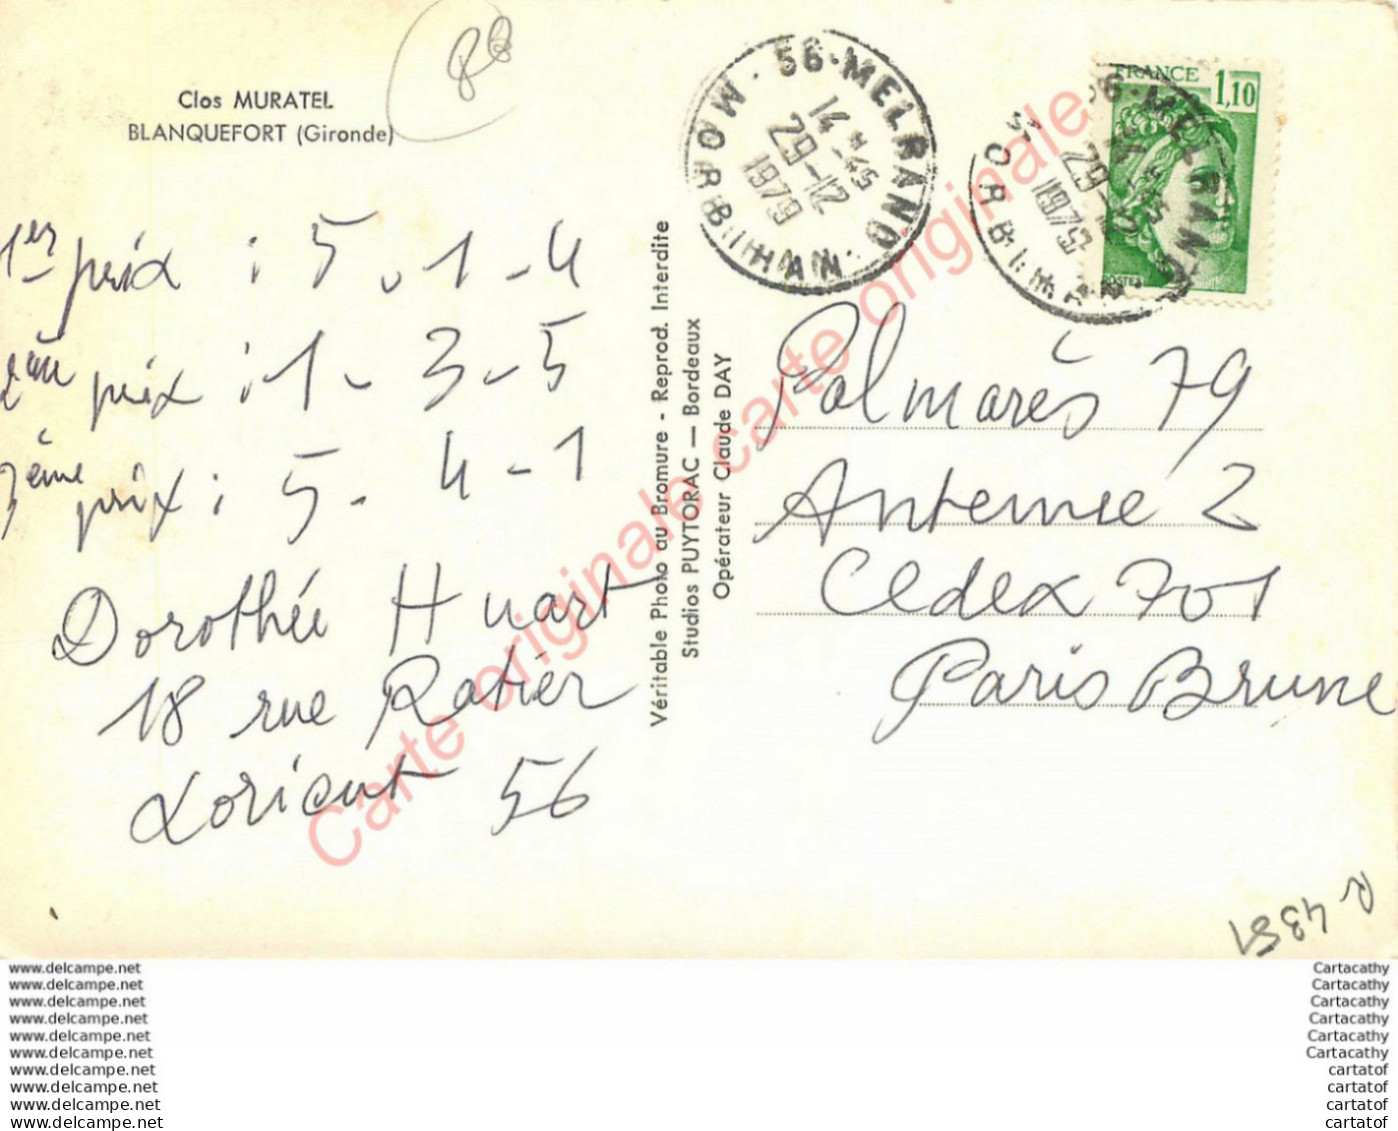 86
Clos MURATEL
BLANQUEFORT (Gironde)
1er prix : 5 - 1 - 4
2ème prix : 1 - 3 - 5
3ème prix : 5 - 4 - 1
Dorothée Huart
18 rue Ratier
Lorient 56
Véritable Photo au Bromure - Reprod. Interdite
Studios PUYTORAC — Bordeaux
Opérateur Claude DAY
56 - MELRAND
14 H 45
29-12
1979
MORBIHAN
FRANCE 1,10
POSTES
56 - MELRAND
14 H 45
29-12
1979
MORBIHAN
Palmarès 79
Antenne 2
Cedex 701
Paris Brune
R. 4351
Carte originale carte originale
www.delcampe.net
www.delcampe.net
www.delcampe.net
www.delcampe.net
www.delcampe.net
www.delcampe.net
www.delcampe.net
www.delcampe.net
www.delcampe.net
www.delcampe.net
Cartacathy
Cartacathy
Cartacathy
Cartacathy
Cartacathy
Cartacathy
cartatof
cartatof
cartatof
cartatof